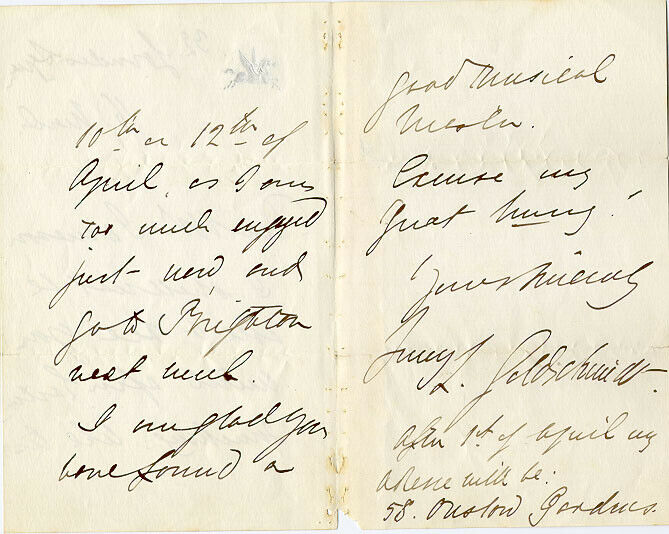 10th or 12th of
April, as I am
too much engaged
just now and
go to Brighton
next week.
I am glad you
have found a
good musical
Master.
Excuse my
great hurry!
Yours sincerely
Jenny L. Goldschmidt.
after 1st of April my
adresse will be:
58. Onslow Gardens.